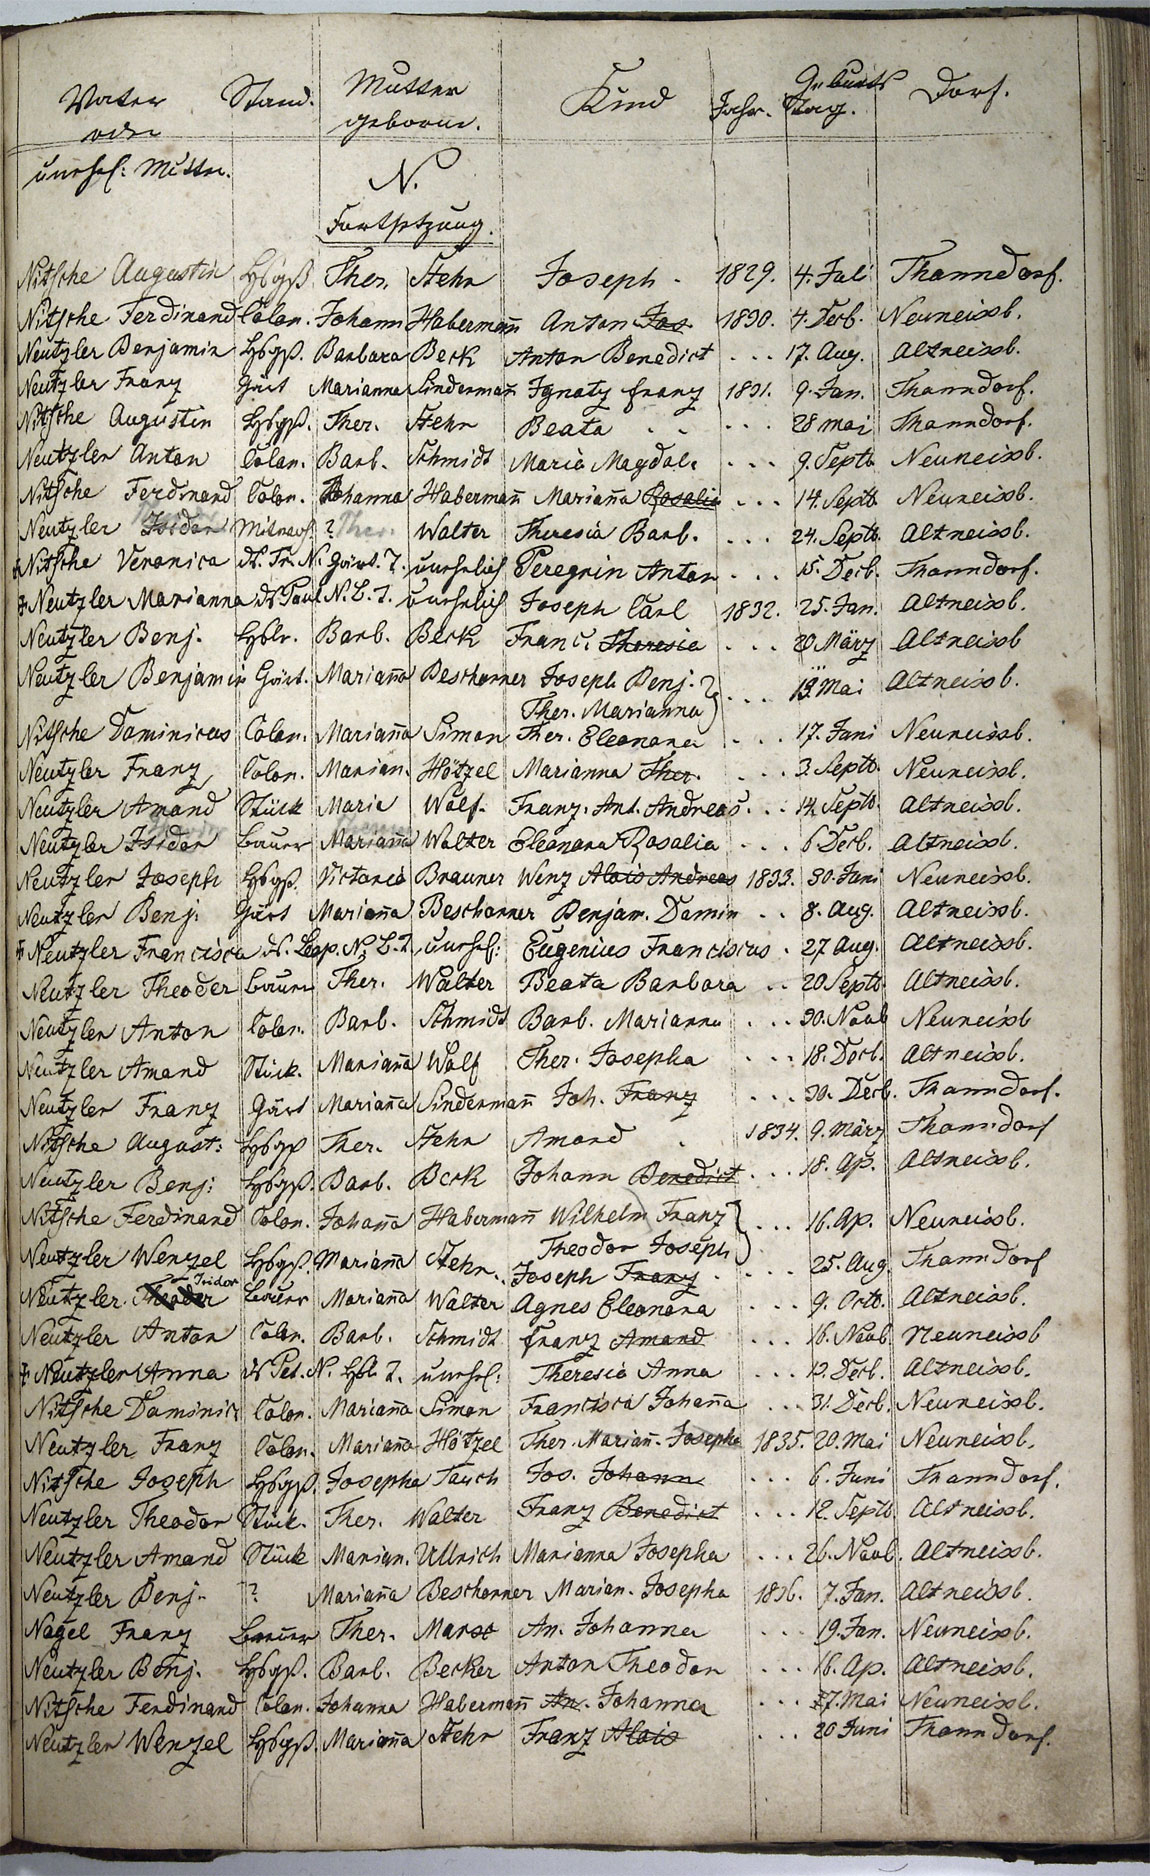 Vater Stand. Mutter Kind Geburts Dorf.
oder geborne. Jahr. Tag.
unehel: Mutter.
N.
Fortsetzung.
Nitsche Augustin Hbgß. Ther. Stehr Joseph 1829. 4. Jul Thanndorf.
Nitsche Ferdinand Colon. Johann Habermañ Anton Jos 1830. 4. Decb. Neuneissb.
Neutzler Benjamin Hbgß. Barbara Beck Anton Benedict . . . 17. Aug. Altneissb.
Neutzler Franz Gärt Marianna Lindermañ Ignatz Franz 1831. 9. Jan. Thanndorf.
Nitsche Augustin Hbgß. Ther. Stehr Beata . . . 28 Mai Thanndorf.
Neutzler Anton Colon. Barb. Schmidt Maria Magdal: . . . 9. Septb. Neuneissb.
Nitsche Ferdinand Colon. Johanna Habermañ Mariaña Rosalia . . . 14. Septb. Neuneissb.
Neutzler Isidor Mitnach. ? Ther. Walter Theresia Barb. . . . 24. Septb. Altneissb.
Nitsche Veronica d. Fr. N. Gärt. T. unehelich Peregrin Anton . . . 15. Decb. Thanndorf.
Neutzler Marianna d. Paul N. L. T. unehelich Joseph Carl 1832. 25. Jan. Altneissb.
Neutzler Benj. Hblr. Barb. Beck Franc. Theresia . . . 20. März Altneissb
Neutzler Benjamin Gärt. Mariaña Beschorner Joseph Benj. . . . 19. Mai Altneissb.
Ther. Marianna
Nitsche Dominicus Colon. Mariaña Simon Ther. Eleonora . . . 17. Juni Neuneissb.
Neutzler Franz Colon. Marian. Hötzel Marianna Ther. . . . 3. Septb. Neuneissb.
Neutzler Amand Stück Maria Wolf. Franz. Ant. Andreas . . . 14. Septb. Altneissb.
Neutzler Isidor Bauer Mariaña Walter Eleonora Rosalia . . . 6 Decb. Altneissb.
Neutzler Joseph Hbgß. Victoria Brauner Wenz Alois Andreas 1833. 30. Juni Neuneissb.
Neutzler Benj. Gärt Mariaña Beschorner Benjam. Domin . . 8. Aug. Altneissb.
Neutzler Francisca d. Leop. N. L. T. unehel: Eugenius Franciscus . 27 Aug. Altneissb.
Neutzler Theoder Bauer Ther. Walter Beata Barbara . . 20 Septb. Altneissb.
Neutzler Anton Colon. Barb. Schmidt Barb. Marianna . . . 30. Novb Neuneissb
Neutzler Amand Stück. Mariaña Wolf Ther. Josepha . . . 18. Decb. Altneissb.
Neutzler Franz Gärt Mariaña Lindermañ Joh. Franz . . . 30. Decb. Thanndorf.
Nitsche August: Hbgß Ther. Stehr Amand 1834. 9. März Thanndorf
Neutzler Benj: Hbgß. Barb. Beck Johann Benedict . . . 18. Ap. Altneissb.
Nitsche Ferdinand Colon. Johaña Habermañ Wilhelm Franz . . . 16. Ap. Neuneissb.
Theodor Joseph
Neutzler Wenzel Hbgß. Mariaña Stehr. Joseph Franz . . . 25. Aug. Thanndorf
Neutzler Theoder Isidor Bauer Mariaña Walter Agnes Eleonora . . . 9. Octb. Altneissb.
Neutzler Anton Colon. Barb. Schmidt Franz Amand . . . 16. Novb. Neuneissb
Neutzler Anna d Pet. N. Hbl. T. unehel: Theresia Anna . . . 13. Decb. Altneissb.
Nitsche Dominic Colon. Mariaña Simon Francisca Johaña . . . 31 Decb. Neuneissb.
Neutzler Franz Colon. Mariaña Hötzel Ther. Mariañ. Josepha 1835. 20. Mai Neuneissb.
Nitsche Joseph Hbgß. Josepha Tauch Jos. Johann . . . 6. Juni Thanndorf.
Neutzler Theodor Stück. Ther. Walter Franz Benedict . . . 12. Septb Altneissb.
Neutzler Amand Stück Marian. Ullrich Marianna Josepha . . . 26. Novb. Altneissb.
Neutzler Benj. ? Mariaña Beschorner Marian. Josepha 1836. 7. Jan. Altneissb.
Nagel Franz Bauer Ther. An. Johanna . . . 19. Jan. Neuneissb.
Neutzler Benj. Hbgß. Barb. Becker Anton Theodor . . . 18. Ap. Altneissb.
Nitsche Ferdinand Colon. Johanna Habermañ An. Johanna . . . 27. Mai Neuneissb.
Neutzler Wenzel Hbgß. Mariaña Stehr Franz Alois . . . 20 Juni Thanndorf.